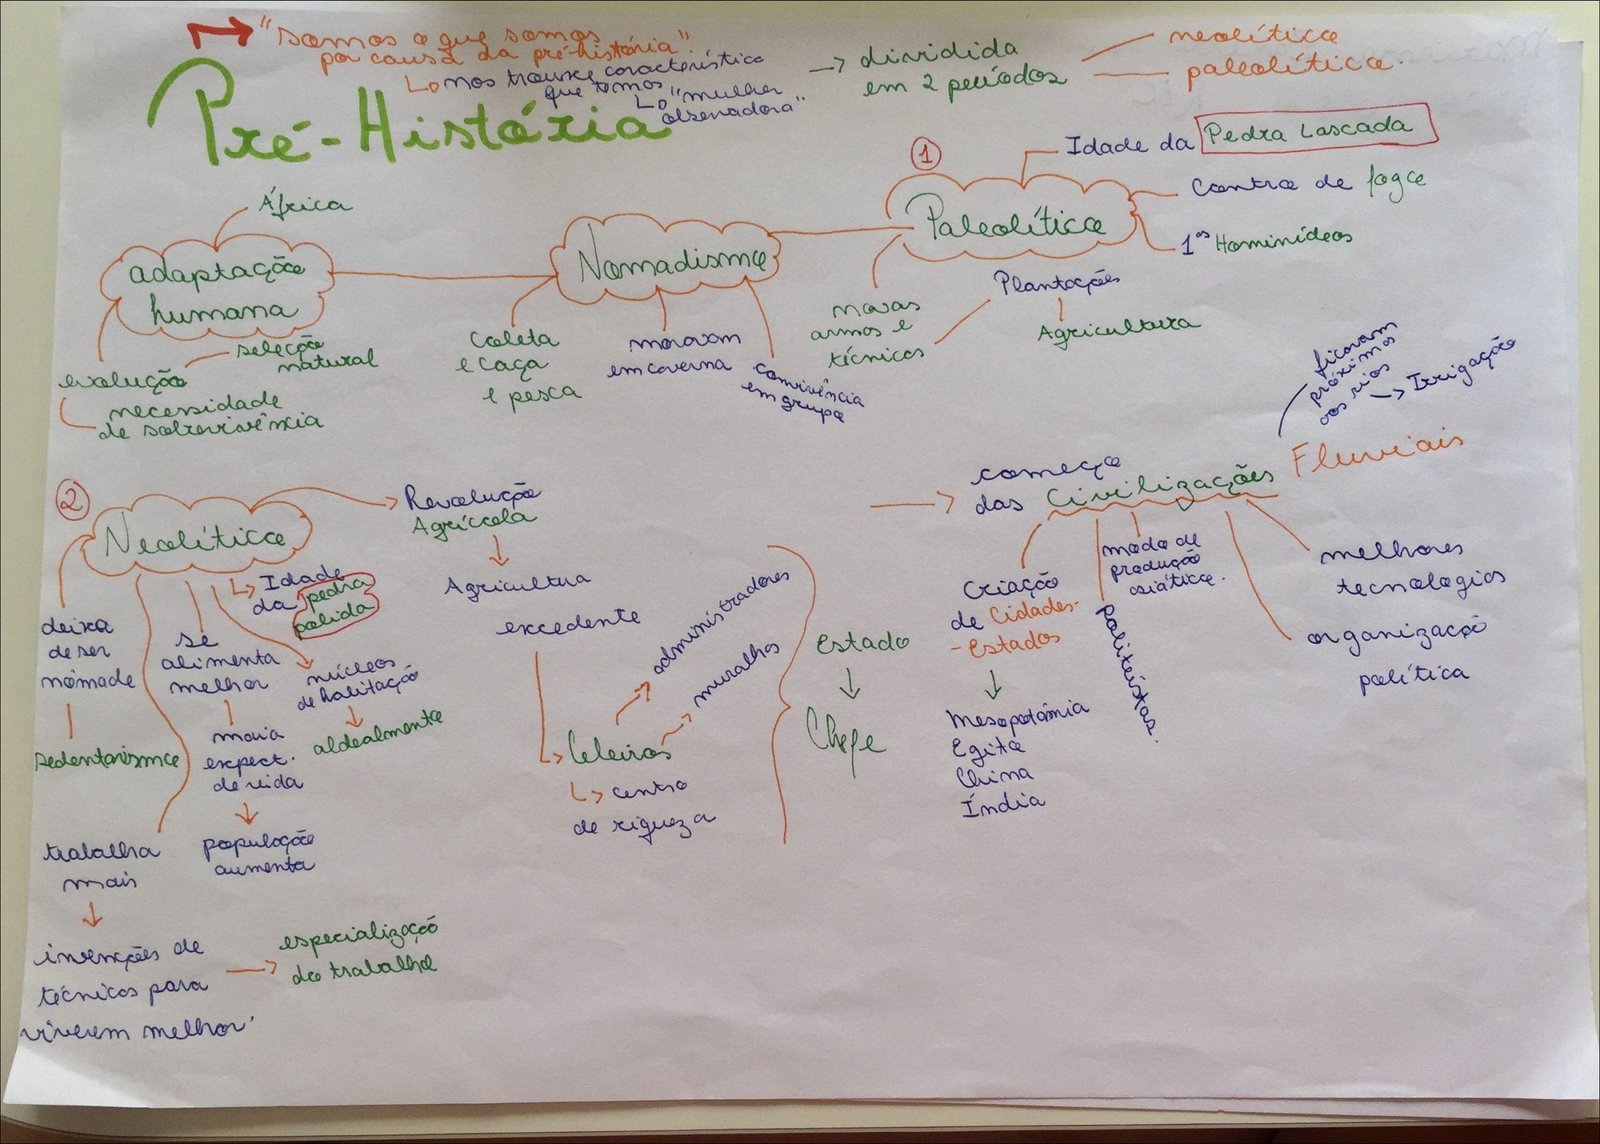 "Somos o que somos
por causa da pré-história".
nos trouxe característica
que temos
"mulher
observadora".
dividida
em 2 períodos
neolítico
paleolítico.
Pré-História
1
Paleolítico
Idade da Pedra Lascada
Contro de fogo
1ºs Hominídeos
novas
armas e
técnicas
Plantações
Agricultura
Nomadismo
Coleta
e caça
e pesca
moravam
em caverna
convivência
em grupo
adaptação
humana
África
evolução
seleção
natural
necessidade
de sobrevivência
2
Neolítico
deixa
de ser
nômade
sedentarismo
trabalha
mais
invenções de
técnicas para
viverem melhor
especialização
do trabalho
se
alimenta
melhor
maia
expect.
de vida
população
aumenta
Idade
da pedra
polida
núcleos
de habitação
aldealmento
Revolução
Agrícola
Agricultura
excedente
Celeiros
centro
de riqueza
administradores
muralhas
Estado
Chefe
começo
das Civilizações Fluviais
ficavam
próximos
aos rios
Irrigação
Criação
de Cidades-
-Estados
Mesopotâmia
Egito
China
Índia
politeístas.
modo de
produção
asiático.
melhores
tecnologias
organização
política